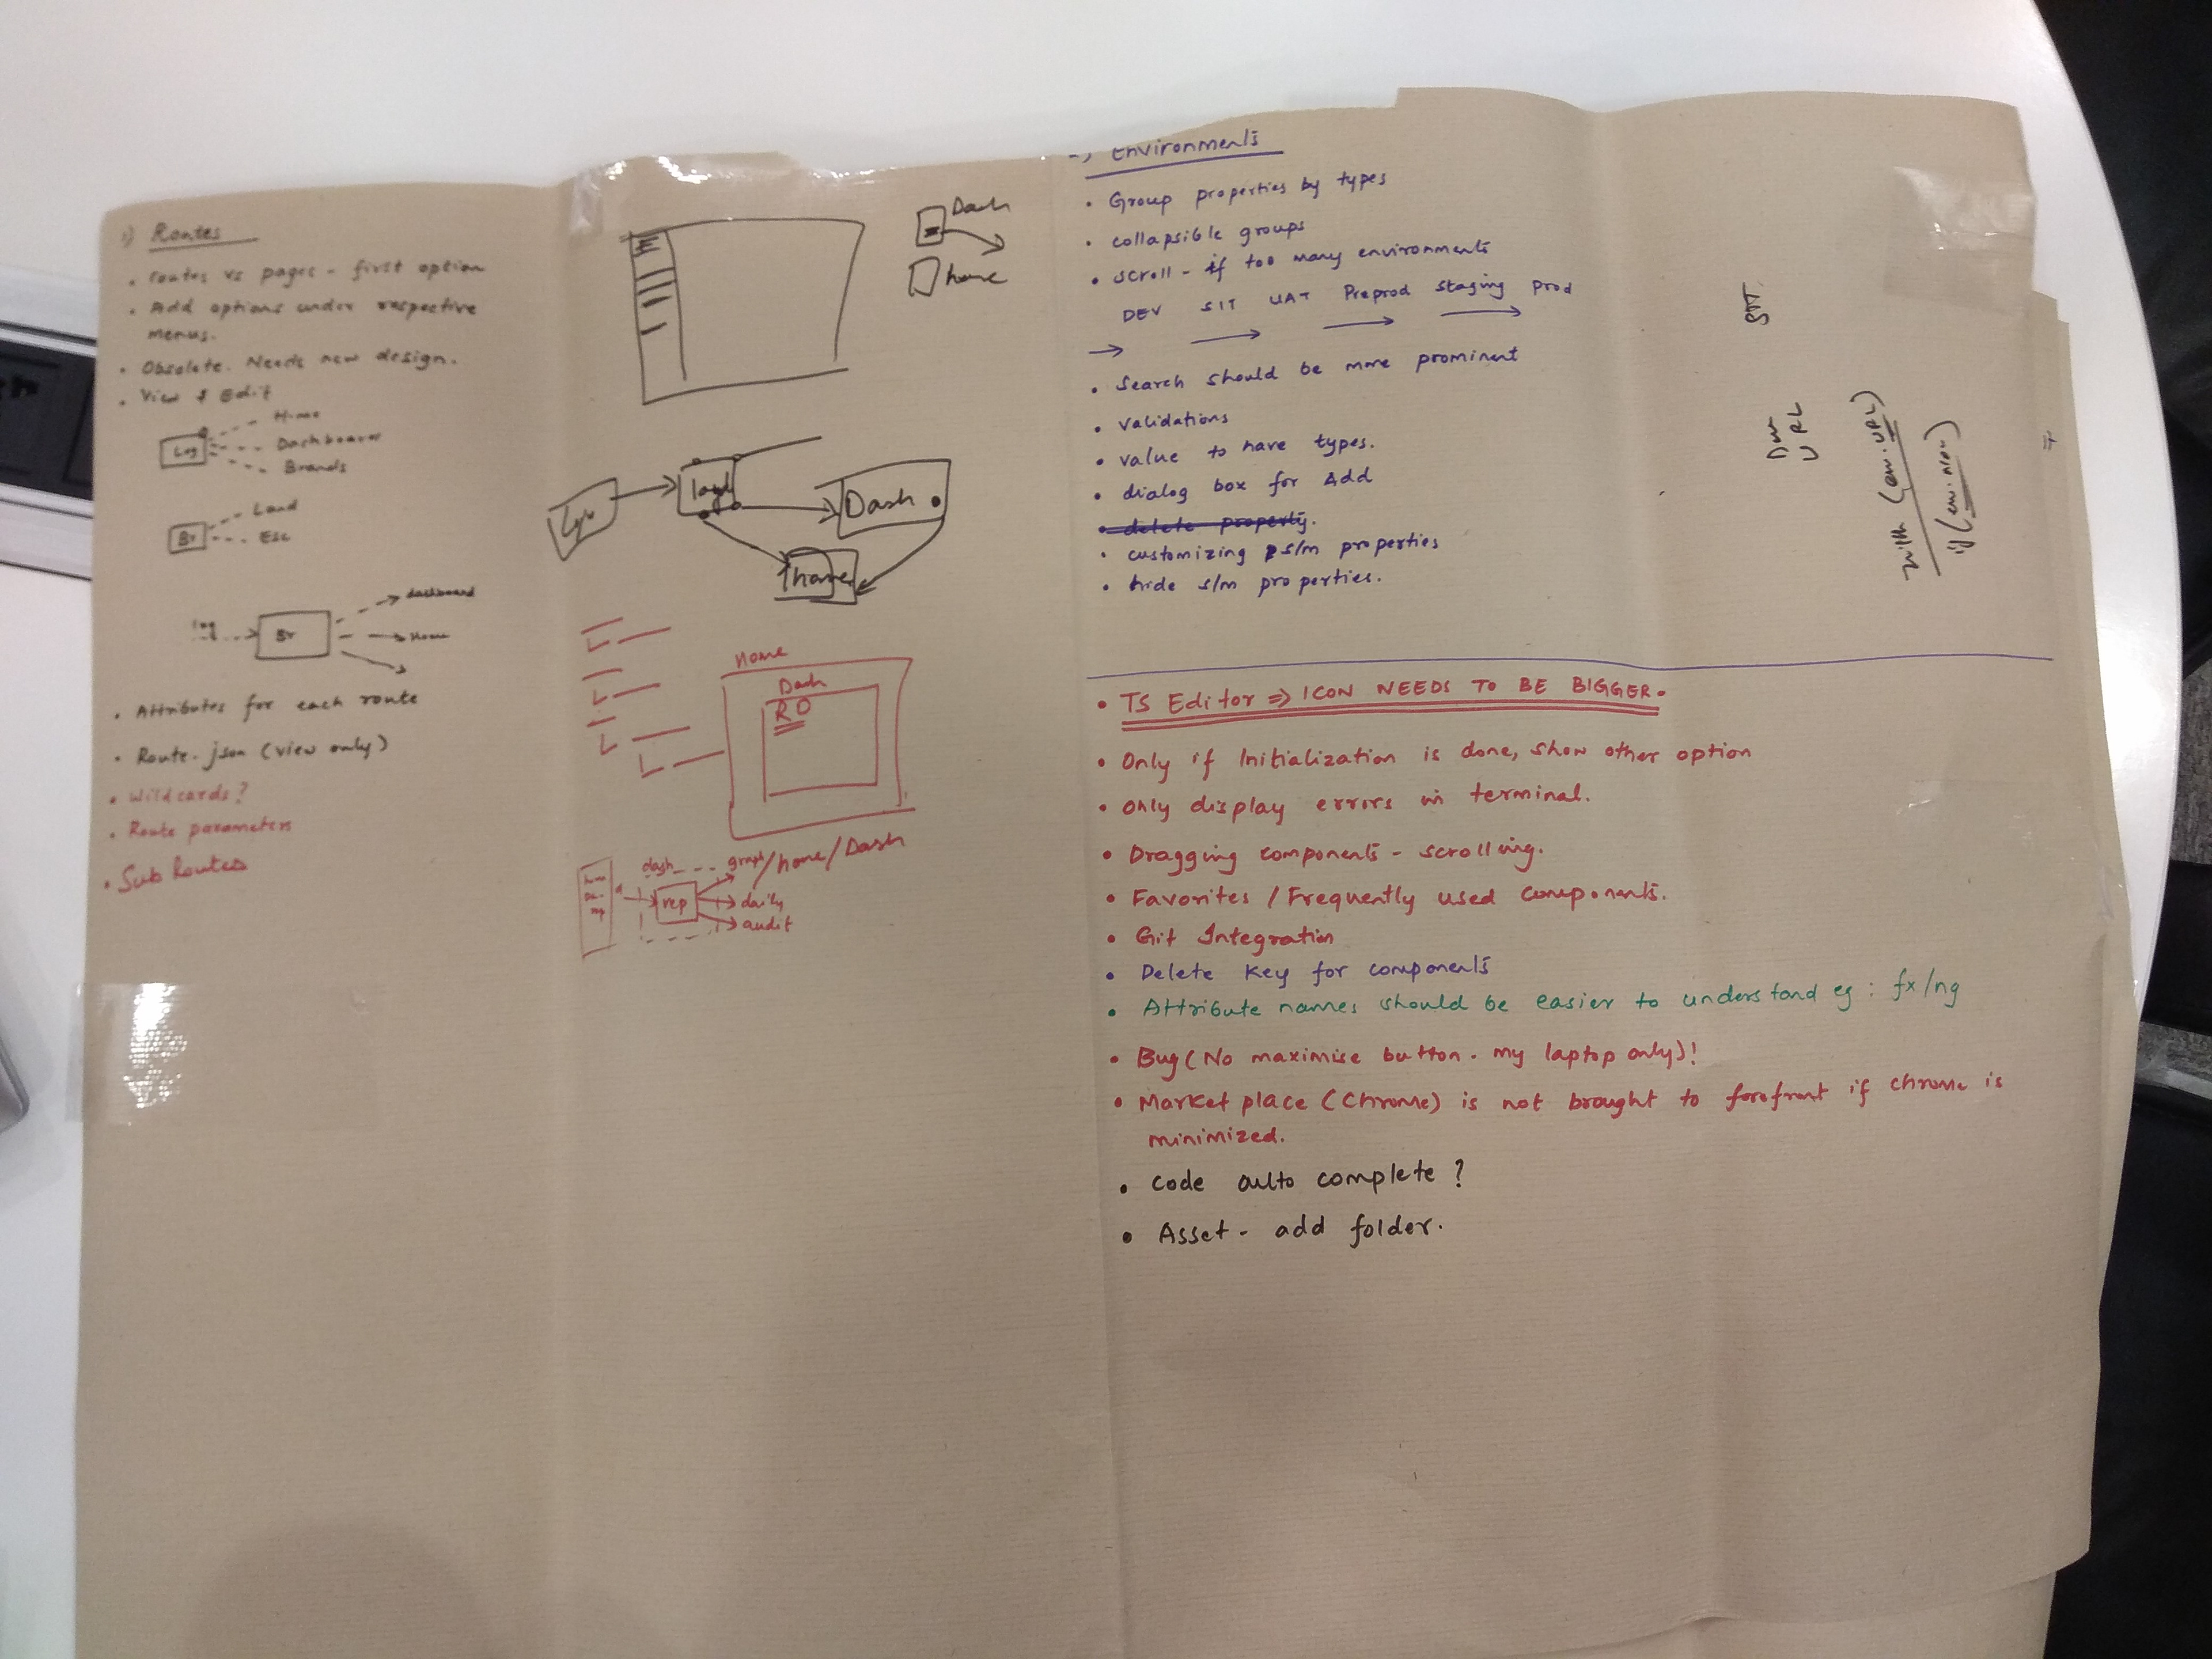 1) Routes
• routes vs pages - first option
• Add options under respective
menus.
• Obsolete. Needs new design.
• View & Edit
Home
Log
Dashboard
Brands
Land
Br
Esc
dashboard
log
Br
Home
• Attributes for each route
• Route.json (view only)
• Wildcards?
• Route parameters
• Sub Routes
Dash
home
Dash
home
home
Dash
RO
/home/Dash
dash
graph
rep
daily
audit
Environments
• Group properties by types
• collapsible groups
• scroll - if too many environments
DEV SIT UAT Preprod staging prod
• Search should be more prominent
• validations
• value to have types.
• dialog box for Add
• delete property.
• customizing s/m properties
• hide s/m properties.
• TS Editor ⇒ ICON NEEDS TO BE BIGGER.
• Only if Initialization is done, show other option
• only display errors in terminal.
• Dragging components - scrolling.
• Favorites / Frequently used components.
• Git Integration
• Delete Key for components
• Attribute names should be easier to understand eg: fx/ng
• Bug (No maximise button - my laptop only)!
• Market place (Chrome) is not brought to forefront if chrome is
minimized.
• Code auto complete?
• Asset - add folder.
URL
with (env.URL)